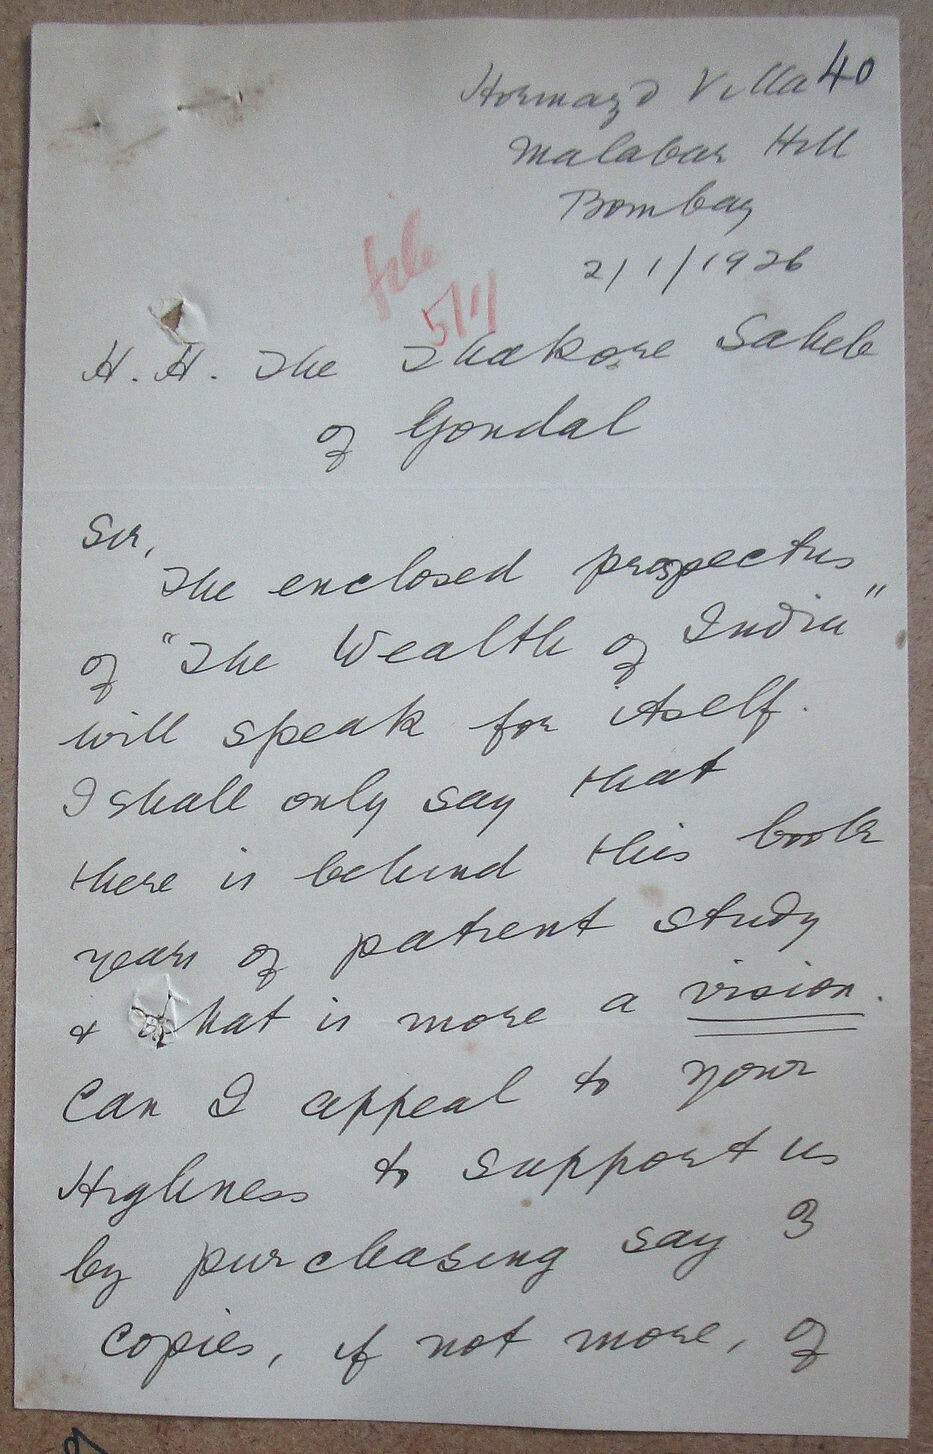 40
Hormazd Villa
Malabar Hill
Bombay
2/1/1926
file
5/1/
H. H. The Thakore Saheb
of Gondal
Sir,
The enclosed prospectus
of "The Wealth of India"
will speak for itself.
I shall only say that
there is behind this book
years of patient study
& what is more a vision.
Can I appeal to your
Highness to support us
by purchasing say 3
copies, if not more, of